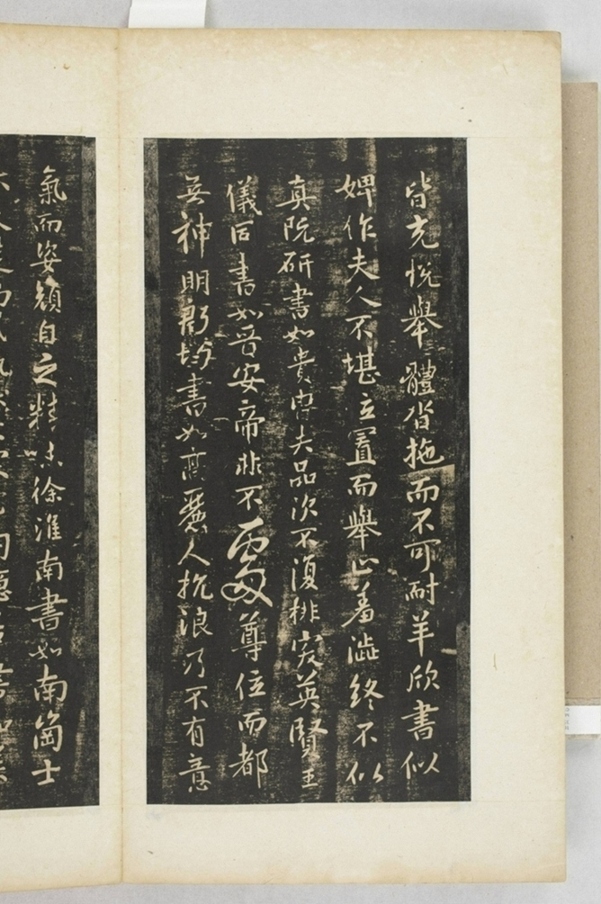 皆充悦舉體沓拖而不可耐羊欣書似
婢作夫人不堪位置而舉止羞澀終不似
真阮研書如貴胄失品次不復排突英賢王
儀同書如晉安帝非不處尊位而都
無神明書如高麗人抗浪乃不有意
氣而姿顏自乏精味徐淮南書如南崗士